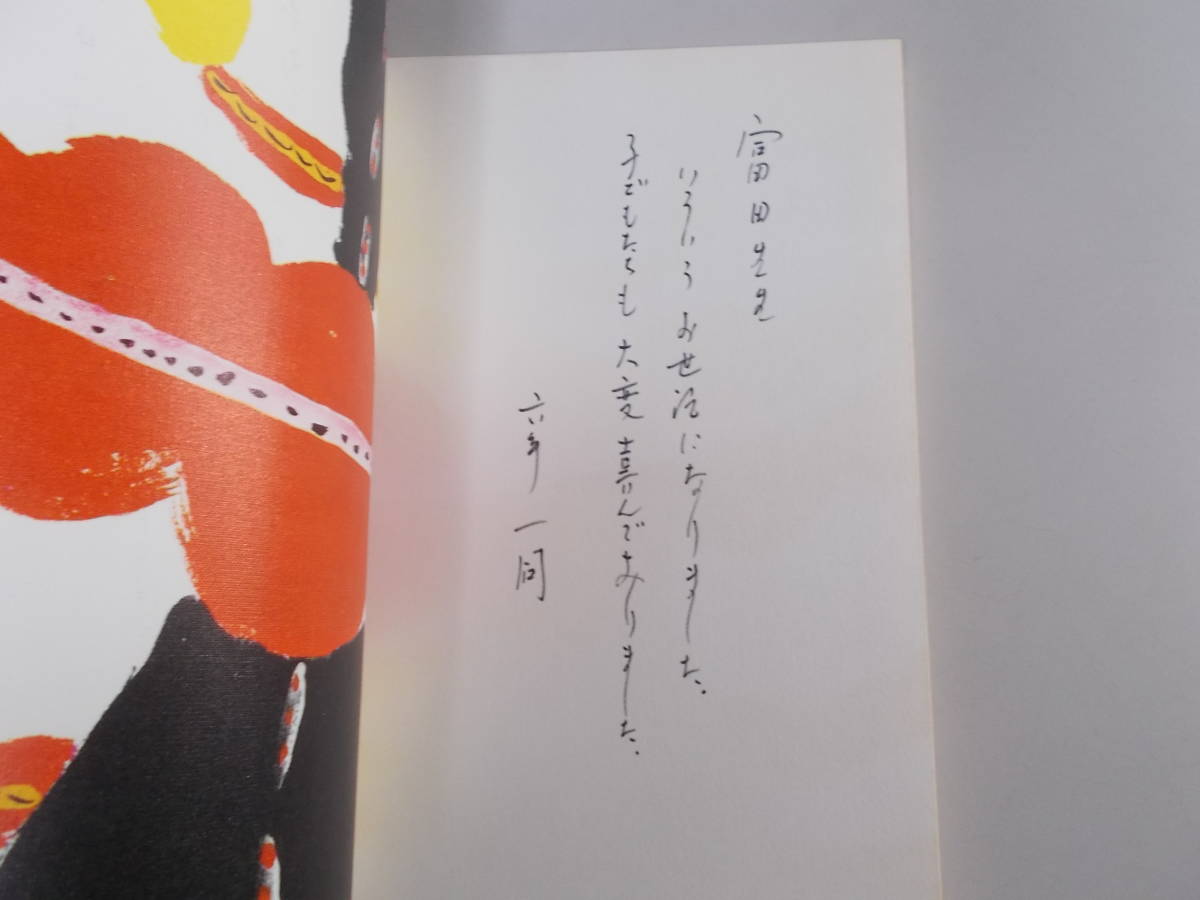 富田先生
いろいろお世話になりました。
子どもたちも大変喜んでおりました。
六年一同